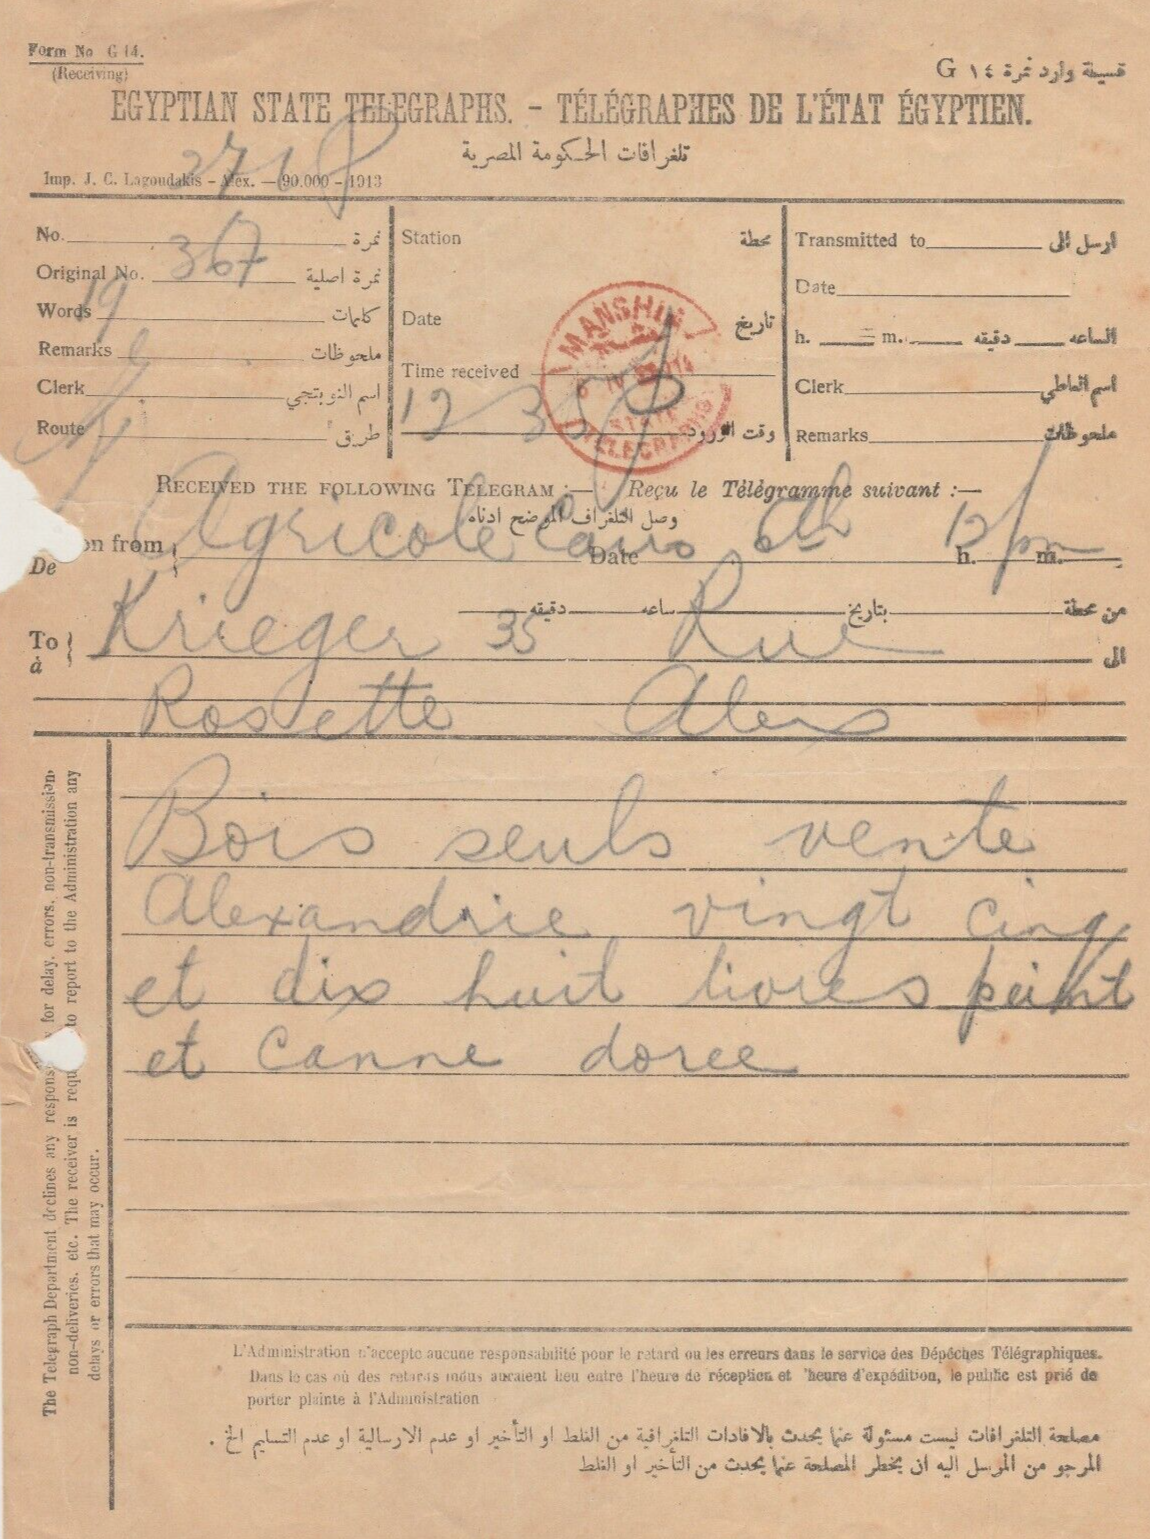 Form No G 14.
(Receiving)
قسيمة وارد نمرة ١٤ G
EGYPTIAN STATE TELEGRAPHS. - TÉLÉGRAPHES DE L'ÉTAT ÉGYPTIEN.
تلغرافات الحكومة المصرية
Imp. J. C. Lagoudakis - Alex. — 90.000 - 1913
No. 367 نمرة
Original No. نمرة اصلية
Words 19 كلمات
Remarks ملحوظات
Clerk اسم النوبتجي
Route طريق
Station محطة
Date تاريخ
Time received
12 35 وقت الورود
MANSHIA
STATE
TELEGRAPHS
Transmitted to ارسل الى
Date
h. m. دقيقه الساعه
Clerk اسم العاطي
Remarks ملحوظات
RECEIVED THE FOLLOWING TELEGRAM :— Reçu le Télégramme suivant :—
وصل التلغراف الموضح ادناه
on from Agricole Cairo Date h. 12/ m.
De
من محطة بتاريخ ساعه دقيقه
To Krieger 35 Rue الى
à
Rossette Alex
Bois seuls vente
Alexandrie vingt cinq
et dix huit livres peint
et canne doree
The Telegraph Department declines any respons y for delay, errors, non-transmission,
non-deliveries, etc. The receiver is requ to report to the Administration any
delays or errors that may occur.
L'Administration n'accepte aucune responsabilité pour le retard ou les erreurs dans le service des Dépêches Télégraphiques.
Dans le cas où des retards indus auraient lieu entre l'heure de réception et 'heure d'expédition, le public est prié de
porter plainte à l'Administration
مصلحة التلغرافات ليست مسئولة عنما يحدث بالافادات التلغرافية من الغلط او التأخير او عدم الارسالية او عدم التسليم الخ .
المرجو من المرسل اليه ان يخطر المصلحة عنما يحدث من التأخير او الغلط